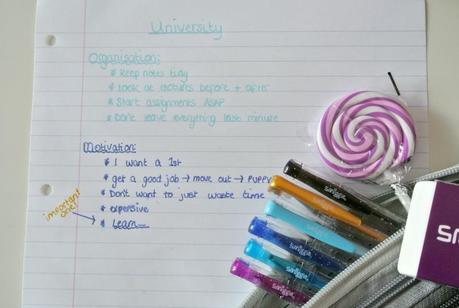 University
Organisation:
* Keep notes tidy
* Look at lectures before + after
* Start assignments ASAP
* Don't leave everything last minute
Motivation:
* I want a 1st
* get a good job → move out → PUPPY
* Don't want to just waste time
* expensive
important one
* Learn
smiggle
smiggle
smiggle
smiggle
smiggle